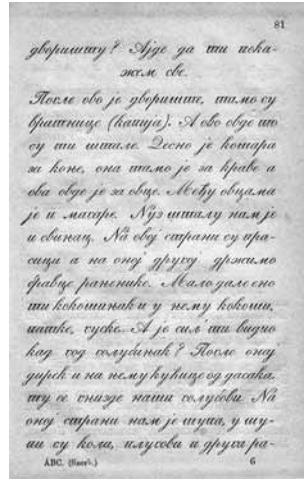 81
дворишту? Ајде да ти пока-
жем све.
После ово је двориште, тамо су
вратнице (капија). А ово овде што
су ти штале. Десно је кошара
за коне, она тамо је за краве а
ова овде је за овце. Међу овцама
је и магаре. Нуз шталу нам је
и свињац. На овој страни су пра-
сици а на оној другој држимо
равце раненике. Мало дале ено
ти кокошињак и у нему кокоши,
патке, гуске. А је сил ти видио
кад год голубињак? После онај
дирек и на нему кућице од дасака.
ту се гнизде наши голубови. На
оној страни нам је шупа, у шу-
пи су кола, плугови и други ра-
ABC. (Bueeb.)
6